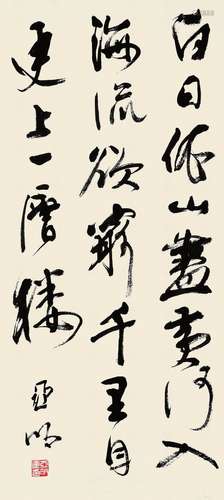 白日依山盡黃河入
海流欲窮千里目
更上一層樓
亞明